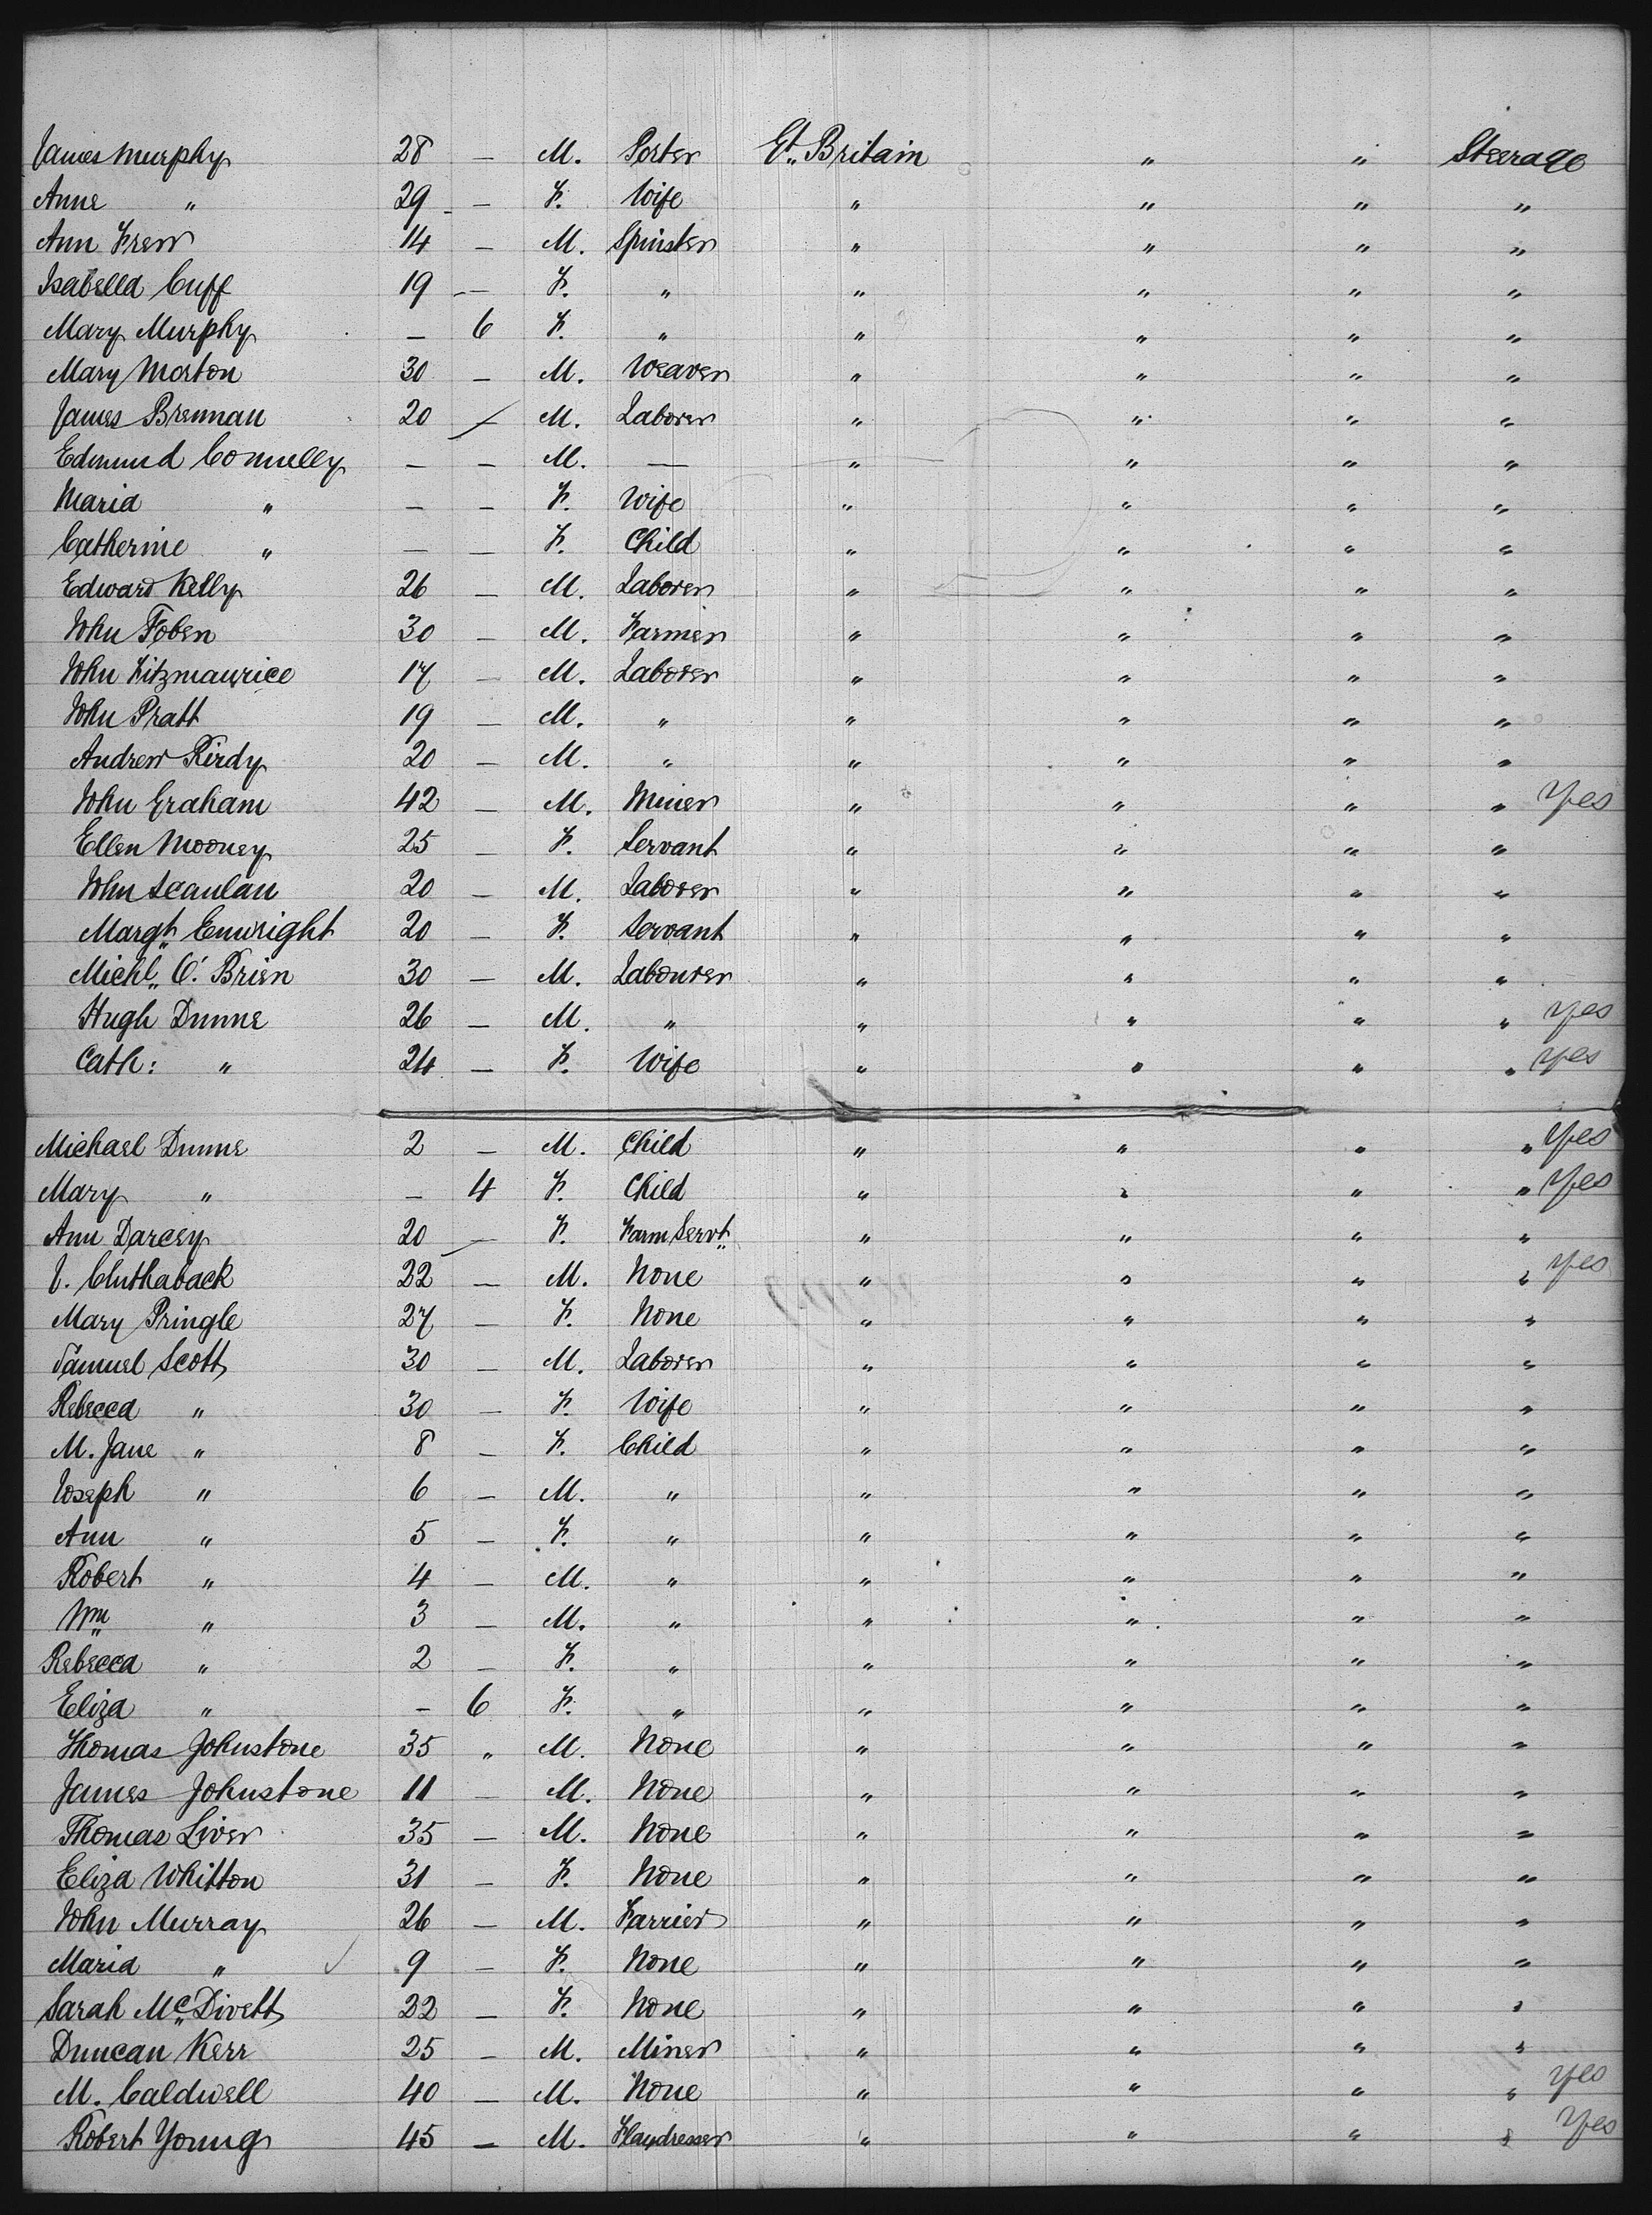 James Murphy 28 — M. Porter Gt. Britain " " Steerage
Anne " 29 — F. Wife " " " "
Ann Frew 14 — M. Spinster " " " "
Isabella Cuff 19 — F. " " " " "
Mary Murphy — 6 F. " " " " "
Mary Morton 30 — M. Weaver " " " "
James Brennan 20 — M. Laborer " " " "
Edmund Connelly — — M. — " " " "
Maria " — — F. Wife " " " "
Catherine " — — F. Child " " " "
Edward Kelly 26 — M. Laborer " " " "
John Foben 30 — M. Farmer " " " "
John Fitzmaurice 17 — M. Laborer " " " "
John Pratt 19 — M. " " " " "
Andrew Kirdy 20 — M. " " " " "
John Graham 42 — M. Miner " " " " Yes
Ellen Mooney 25 — F. Servant " " " "
John Scanlan 20 — M. Laborer " " " "
Margt. Enwright 20 — F. Servant " " " "
Michl. O'Brien 30 — M. Labourer " " " "
Hugh Dunne 26 — M. " " " " " yes
Cath: " 24 — F. Wife " " " " yes
Michael Dunne 2 — M. Child " " " " Yes
Mary " — 4 F. Child " " " " Yes
Ann Darcey 20 — F. Farm Servt. " " " "
J. Cluthaback 22 — M. None " " " " yes
Mary Pringle 27 — F. None " " " "
Samuel Scott 30 — M. Laborer " " " "
Rebecca " 30 — F. Wife " " " "
M. Jane " 8 — F. Child " " " "
Joseph " 6 — M. " " " " "
Ann " 5 — F. " " " " "
Robert " 4 — M. " " " " "
Wm. " 3 — M. " " " " "
Rebecca " 2 — F. " " " " "
Eliza " — 6 F. " " " " "
Thomas Johnstone 35 " M. None " " " "
James Johnstone 11 — M. None " " " "
Thomas Liver 35 — M. None " " " "
Eliza Whitton 31 — F. None " " " "
John Murray 26 — M. Farrier " " " "
Maria " ✓ 9 — F. None " " " "
Sarah McDivett 22 — F. None " " " "
Duncan Kerr 25 — M. Miner " " " "
M. Caldwell 40 — M. None " " " " yes
Robert Young 45 — M. Flaxdresser " " " " Yes